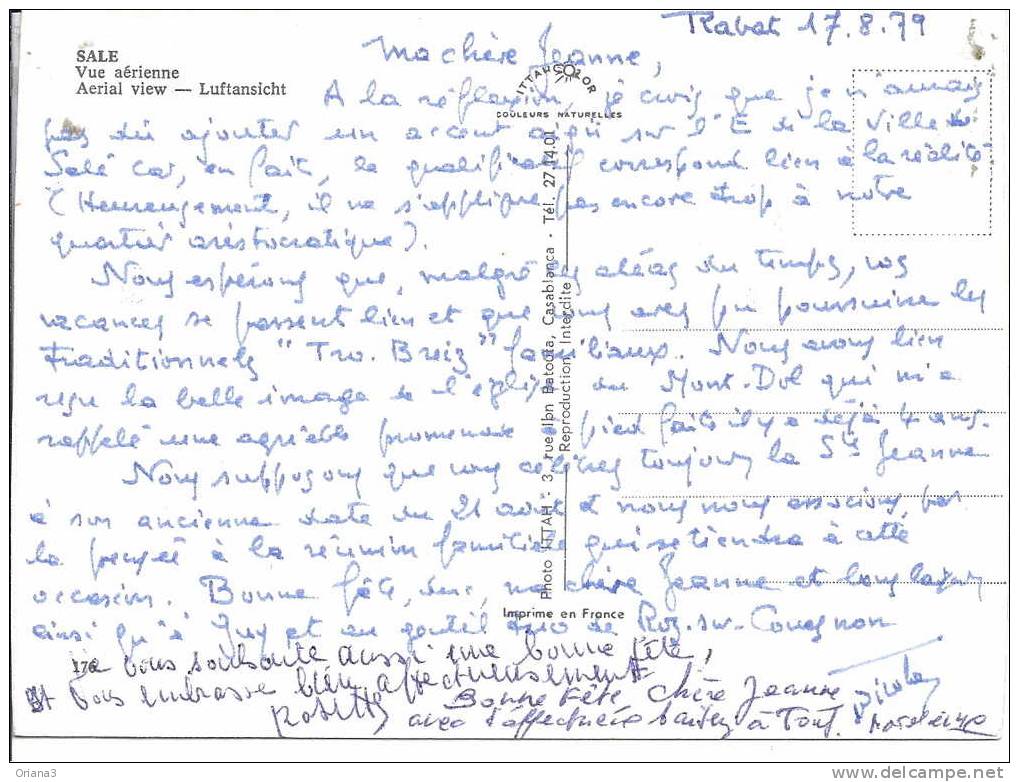 Rabat 17.8.79
SALE
Vue aérienne
Aerial view — Luftansicht
Ma chère Jeanne,
ITTAH COLOR
COULEURS NATURELLES
A la réflexion, je crois que je n'aurais
pas dû ajouter un accent aigu sur l'E de la ville de
Salé car, en fait, le qualificatif correspond bien à la réalité
(Heureusement, il ne s'applique pas encore trop à notre
quartier aristocratique).
Nous espérons que, malgré les aléas du temps, vos
vacances se passent bien et que vous avez pu poursuivre les
traditionnels "Tro. Breiz" familiaux. Nous avons bien
reçu la belle image de l'église du Mont-Dol qui m'a
rappelé une agréable promenade à pied faite il y a déjà 4 ans.
Nous supposons que vous célébrez toujours la Ste Jeanne
à son ancienne date du 21 août et nous nous associons, par
la pensée à la réunion familiale qui se tiendra à cette
occasion. Bonne fête, donc, ma chère Jeanne et bons baisers
ainsi qu'à Guy et au gentil trio de Roz-sur-Couesnon
Photo ITTAH - 3, rue Ibn Batouta, Casablanca - Tél. 27.14.01
Reproduction Interdite
Imprimé en France
176
Je vous souhaite aussi une bonne fête,
et vous embrasse bien affectueusement
Bonne Fête Chère Jeanne
avec d'affectueux baisers à Tous.